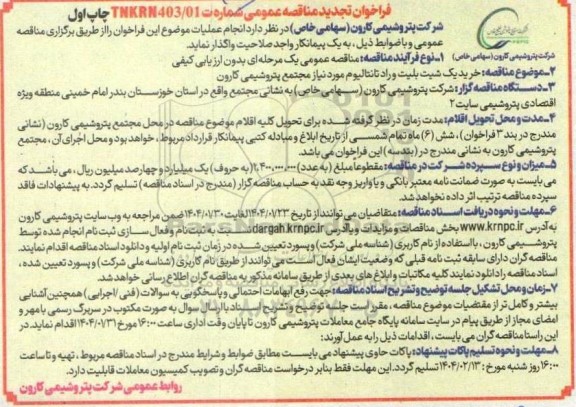 فراخوان تجدید مناقصه عمومی شماره ت TNKRN403/01 چاپ اول
شرکت پتروشیمی کارون (سهامی خاص) در نظر دارد انجام عملیات موضوع این فراخوان را از طریق برگزاری مناقصه
عمومی و با ضوابط ذیل، به یک پیمانکار واجد صلاحیت واگذار نماید.
شرکت پتروشیمی کارون (سهامی خاص)
۱-نوع فرآیند مناقصه: مناقصه عمومی یک مرحله ای بدون ارزیابی کیفی
۲-موضوع مناقصه: خرید یک شیت بلیت و راد تانتالیوم مورد نیاز مجتمع پتروشیمی کارون
۳-دستگاه مناقصه گزار: شرکت پتروشیمی کارون (سهامی خاص) به نشانی مجتمع واقع در استان خوزستان بندر امام خمینی منطقه ویژه
اقتصادی پتروشیمی سایت ۲
۴-مدت و محل تحویل اقلام: مدت زمان در نظر گرفته شده برای تحویل کلیه اقلام موضوع مناقصه در محل مجتمع پتروشیمی کارون (نشانی
مندرج در بند ۳ فراخوان)، شش (۶) ماه تمام شمسی از تاریخ ابلاغ و مبادله کتبی پیمانکار قرارداد مربوط، خواهد بود و محل اجرای آن، مجتمع
پتروشیمی کارون به نشانی مندرج در (بند سه) این فراخوان می باشد.
۵-میزان و نوع سپرده شرکت در مناقصه: مقطوعاً مبلغ (به عدد) ۱,۴۰۰,۰۰۰,۰۰۰ (به حروف) یک میلیارد و چهارصد میلیون ریال، می باشد که
می بایست به صورت ضمانت نامه معتبر بانکی و یا واریز وجه نقد به حساب مناقصه گزار (مندرج در اسناد مناقصه) تسلیم گردد. به پیشنهادات فاقد
سپرده مناقصه ترتیب اثر داده نخواهد شد.
۶-مهلت و نحوه دریافت اسناد مناقصه: متقاضیان می توانند از تاریخ ۱۴۰۴/۰۱/۲۳ لغایت ۱۴۰۴/۰۱/۳۰ ضمن مراجعه به وب سایت پتروشیمی کارون
به آدرس www.krnpc.ir بخش مناقصات و مزایدات و یا آدرس dargah.krnpc.ir نسبت به ثبت نام و فعال سازی ثبت نام انجام شده توسط
پتروشیمی کارون، با استفاده از نام کاربری (شناسه ملی شرکت) و پسورد تعیین شده در زمان ثبت نام اولیه و دانلود اسناد مناقصه اقدام نمایند.
مناقصه گران دارای سابقه ثبت نامه قبلی که وضعیت ایشان فعال است می توانند از طریق نام کاربری (شناسه ملی شرکت) و پسورد تعیین شده،
اسناد مناقصه را دانلود نمایند کلیه مکاتبات و ابلاغ های بعدی از طریق سامانه مذکور به مناقصه گران اطلاع رسانی خواهد شد.
۷-زمان و محل تشکیل جلسه توضیح و تشریح اسناد مناقصه: جهت رفع ابهامات احتمالی و پاسخگویی به سوالات (فنی/اجرایی) همچنین آشنایی
بیشتر و کامل تر از مقتضیات موضوع مناقصه، مقرراست جلسه توضیح و تشریح اسناد با ارسال سوال به صورت مکتوب در سربرگ رسمی با مهر و
امضای مجاز از طریق پیام در سایت سامانه پایگاه جامع معاملات پتروشیمی کارون تا پایان وقت اداری ساعت ۱۶:۰۰ مورخ ۱۴۰۴/۰۱/۳۱ اقدام نماید. در
این راستا مناقصه گران می بایست، اقدامات ذیل را به عمل آورند:
۸-مهلت و نحوه تسلیم پاکات پیشنهاد: پاکات حاوی پیشنهاد می بایست مطابق ضوابط و شرایط مندرج در اسناد مناقصه مربوط، تهیه و تا ساعت
۱۶:۰۰ روز شنبه مورخ: ۱۴۰۴/۰۲/۱۳ تسلیم گردد. این مهلت فقط بنابر درخواست مناقصه گران و تصویب کمیسیون معاملات قابلیت دارد.
روابط عمومی شرکت پتروشیمی کارون